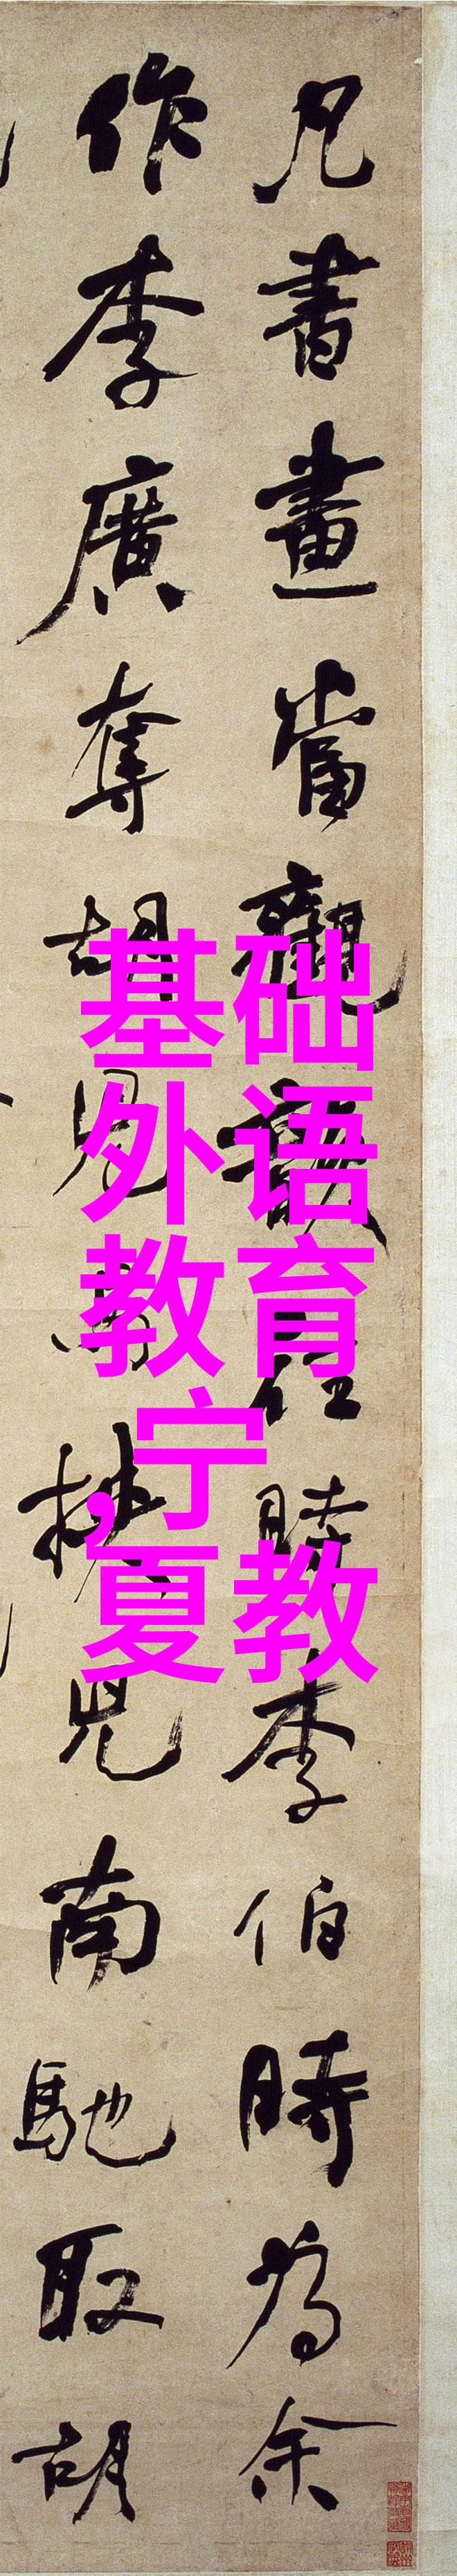 凡書畫當觀韻往時李伯時為余
作李廣奪胡兒馬挾兒南馳取胡
基础
外语
教育
,宁
夏教